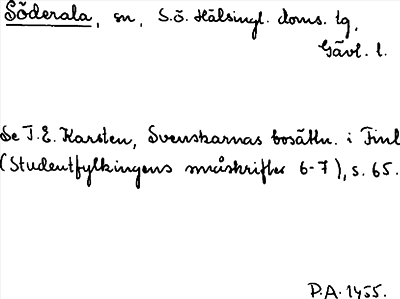 Söderala, sn, S.ö. Hälsingl. doms. tg,
Gävl. l.
Se T.E. Karsten, Svenskarnas bosättn. i Finl
(Studentfylkingens småskrifter 6-7), s. 65.
P.A. 1955.